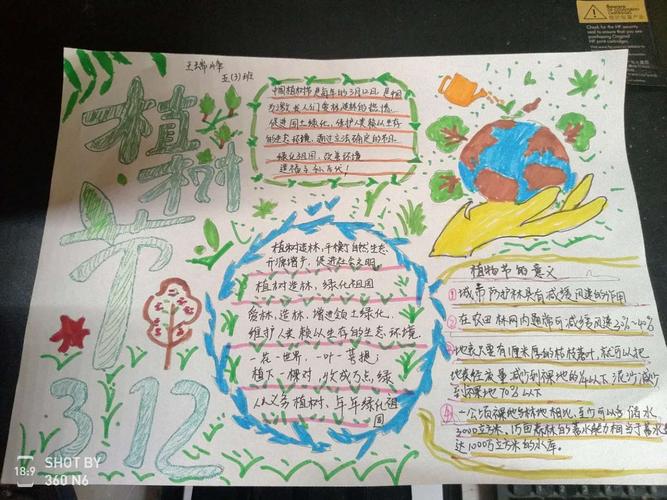 王瑞峰
五(3)班
植树节
3.12
中国植树节是每年的3月12日,是中国
为激发人们爱林造林的热情,
促进国土绿化,维护人类赖以生存
的生态环境,通过立法确定的节日。
绿化祖国,改善环境
造福子孙后代!
植树造林,平衡自然生态
开源增产,促进社会文明。
植树造林,绿化祖国
爱林,造林,增进领土绿化,
维护人类赖以生存的生态环境。
一花一世界,一叶一菩提;
植下一棵树,收成万点绿
人人义务植树,年年绿化祖
国
植物节的意义
①城市防护林具有减缓风速的作用
②在农田林网内通常可减缓风速3%~40%
地表只要有1厘米厚的枯枝落叶,就可以把
地表径流减少到裸地的1/4以下,泥沙减少
到裸地70%以下
④一个公顷裸地与林地相比,至少可以多储水
3000立方米,1万亩森林的蓄水能力相当于蓄水量
达1000万立方米的水库。
Beware
Check for the HP security
seal to ensure that you are
purchasing Original
HP print cartridges.
18:9
SHOT BY
360 N6